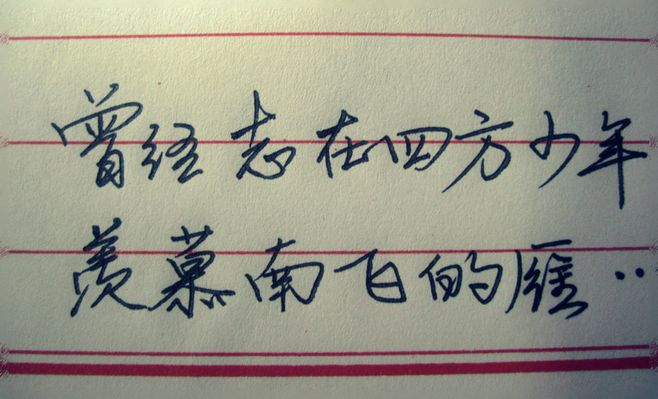 曾经志在四方少年
羡慕南飞的雁··